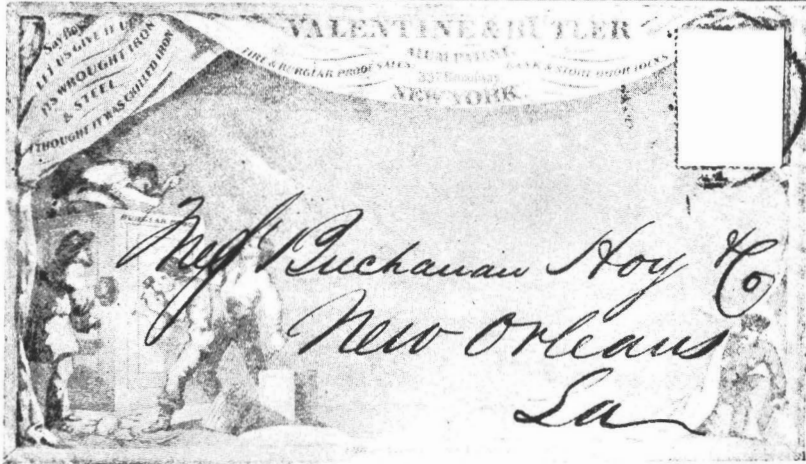 Say Boys
LET US GIVE IT UP
ITS WROUGHT IRON
& STEEL
I THOUGHT IT WAS CHILLED IRON
VALENTINE & BUTLER
ALUM PATENT
FIRE & BURGLAR PROOF SAFES, BANK & STORE DOOR LOCKS
Broadway
NEW YORK.
BURGLAR
Messrs Buchanan Hoy & Co
New Orleans
La